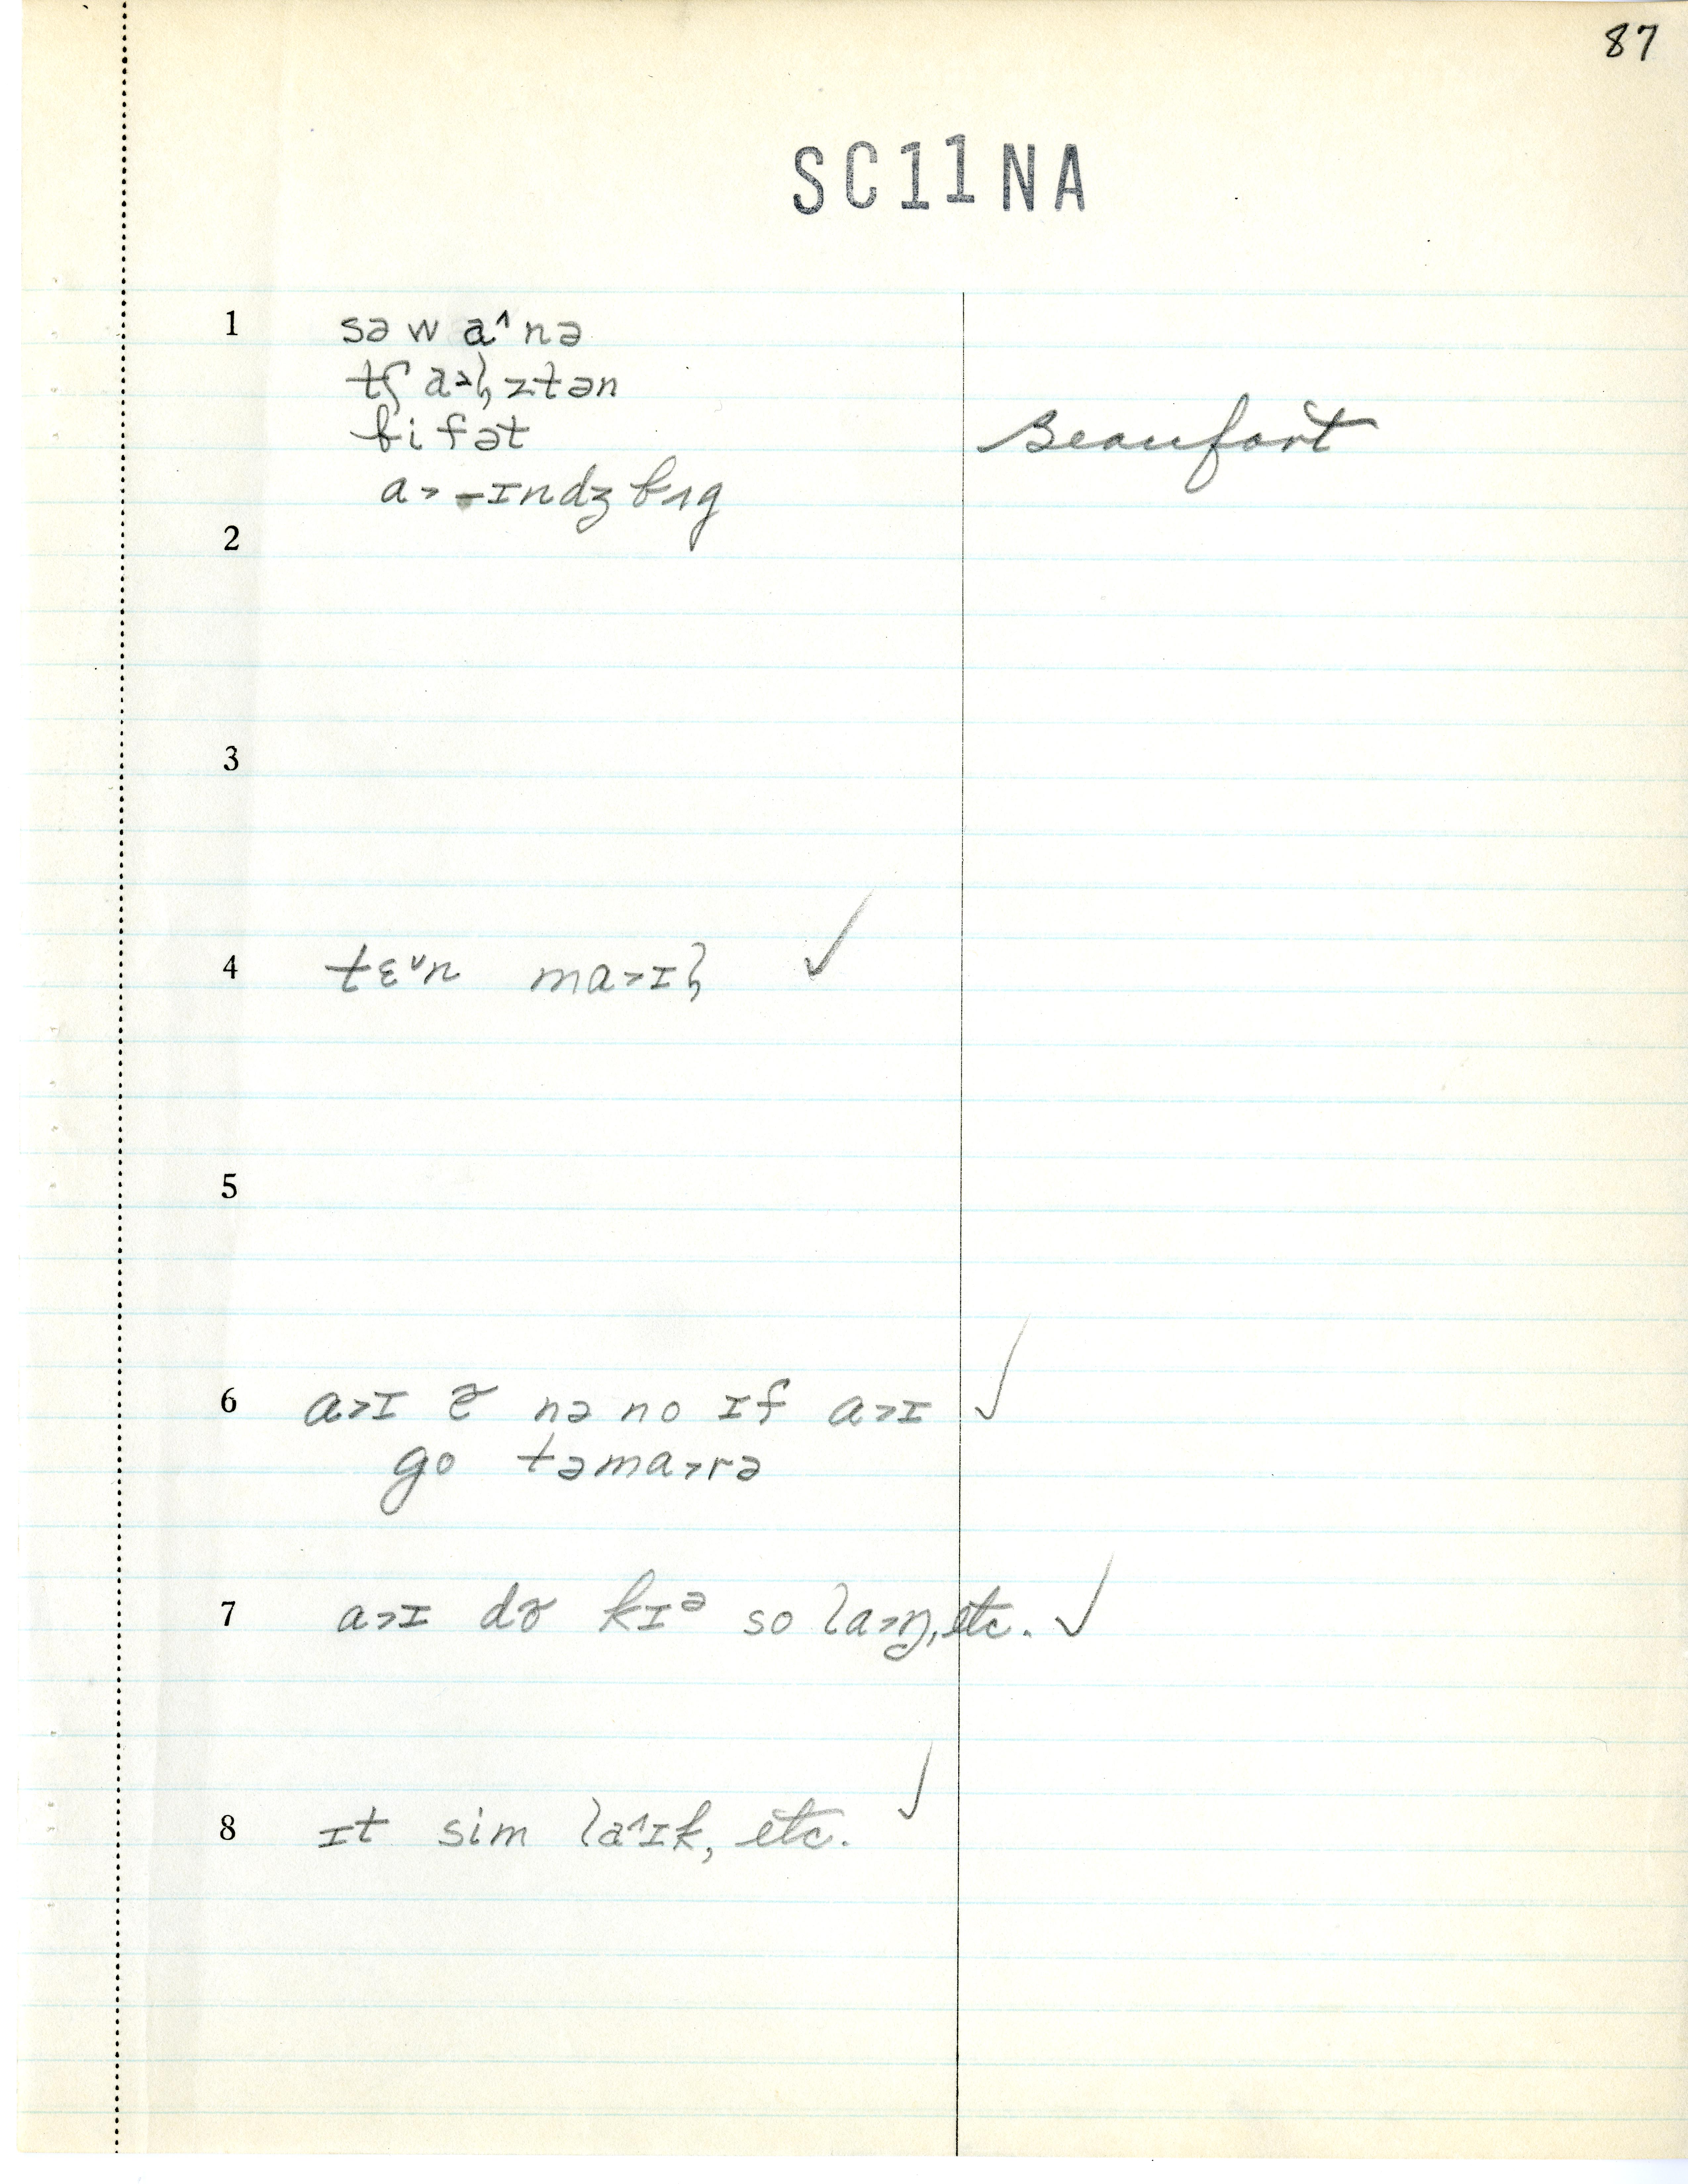 87
SC11NA
1 səwa^nə
tʃa>ɫztən
bifət Beaufort
a>-ɪndzbɜg
2
3
4 tɛ˅n ma>ɪɫ ✓
5
6 a>ɪ ə̃ nə no ɪf a>ɪ ✓
go təma>rə
7 a>ɪ dõ kɪᵊ so la>ŋ, etc. ✓
8 ɪt sim la^ɪk, etc. ✓